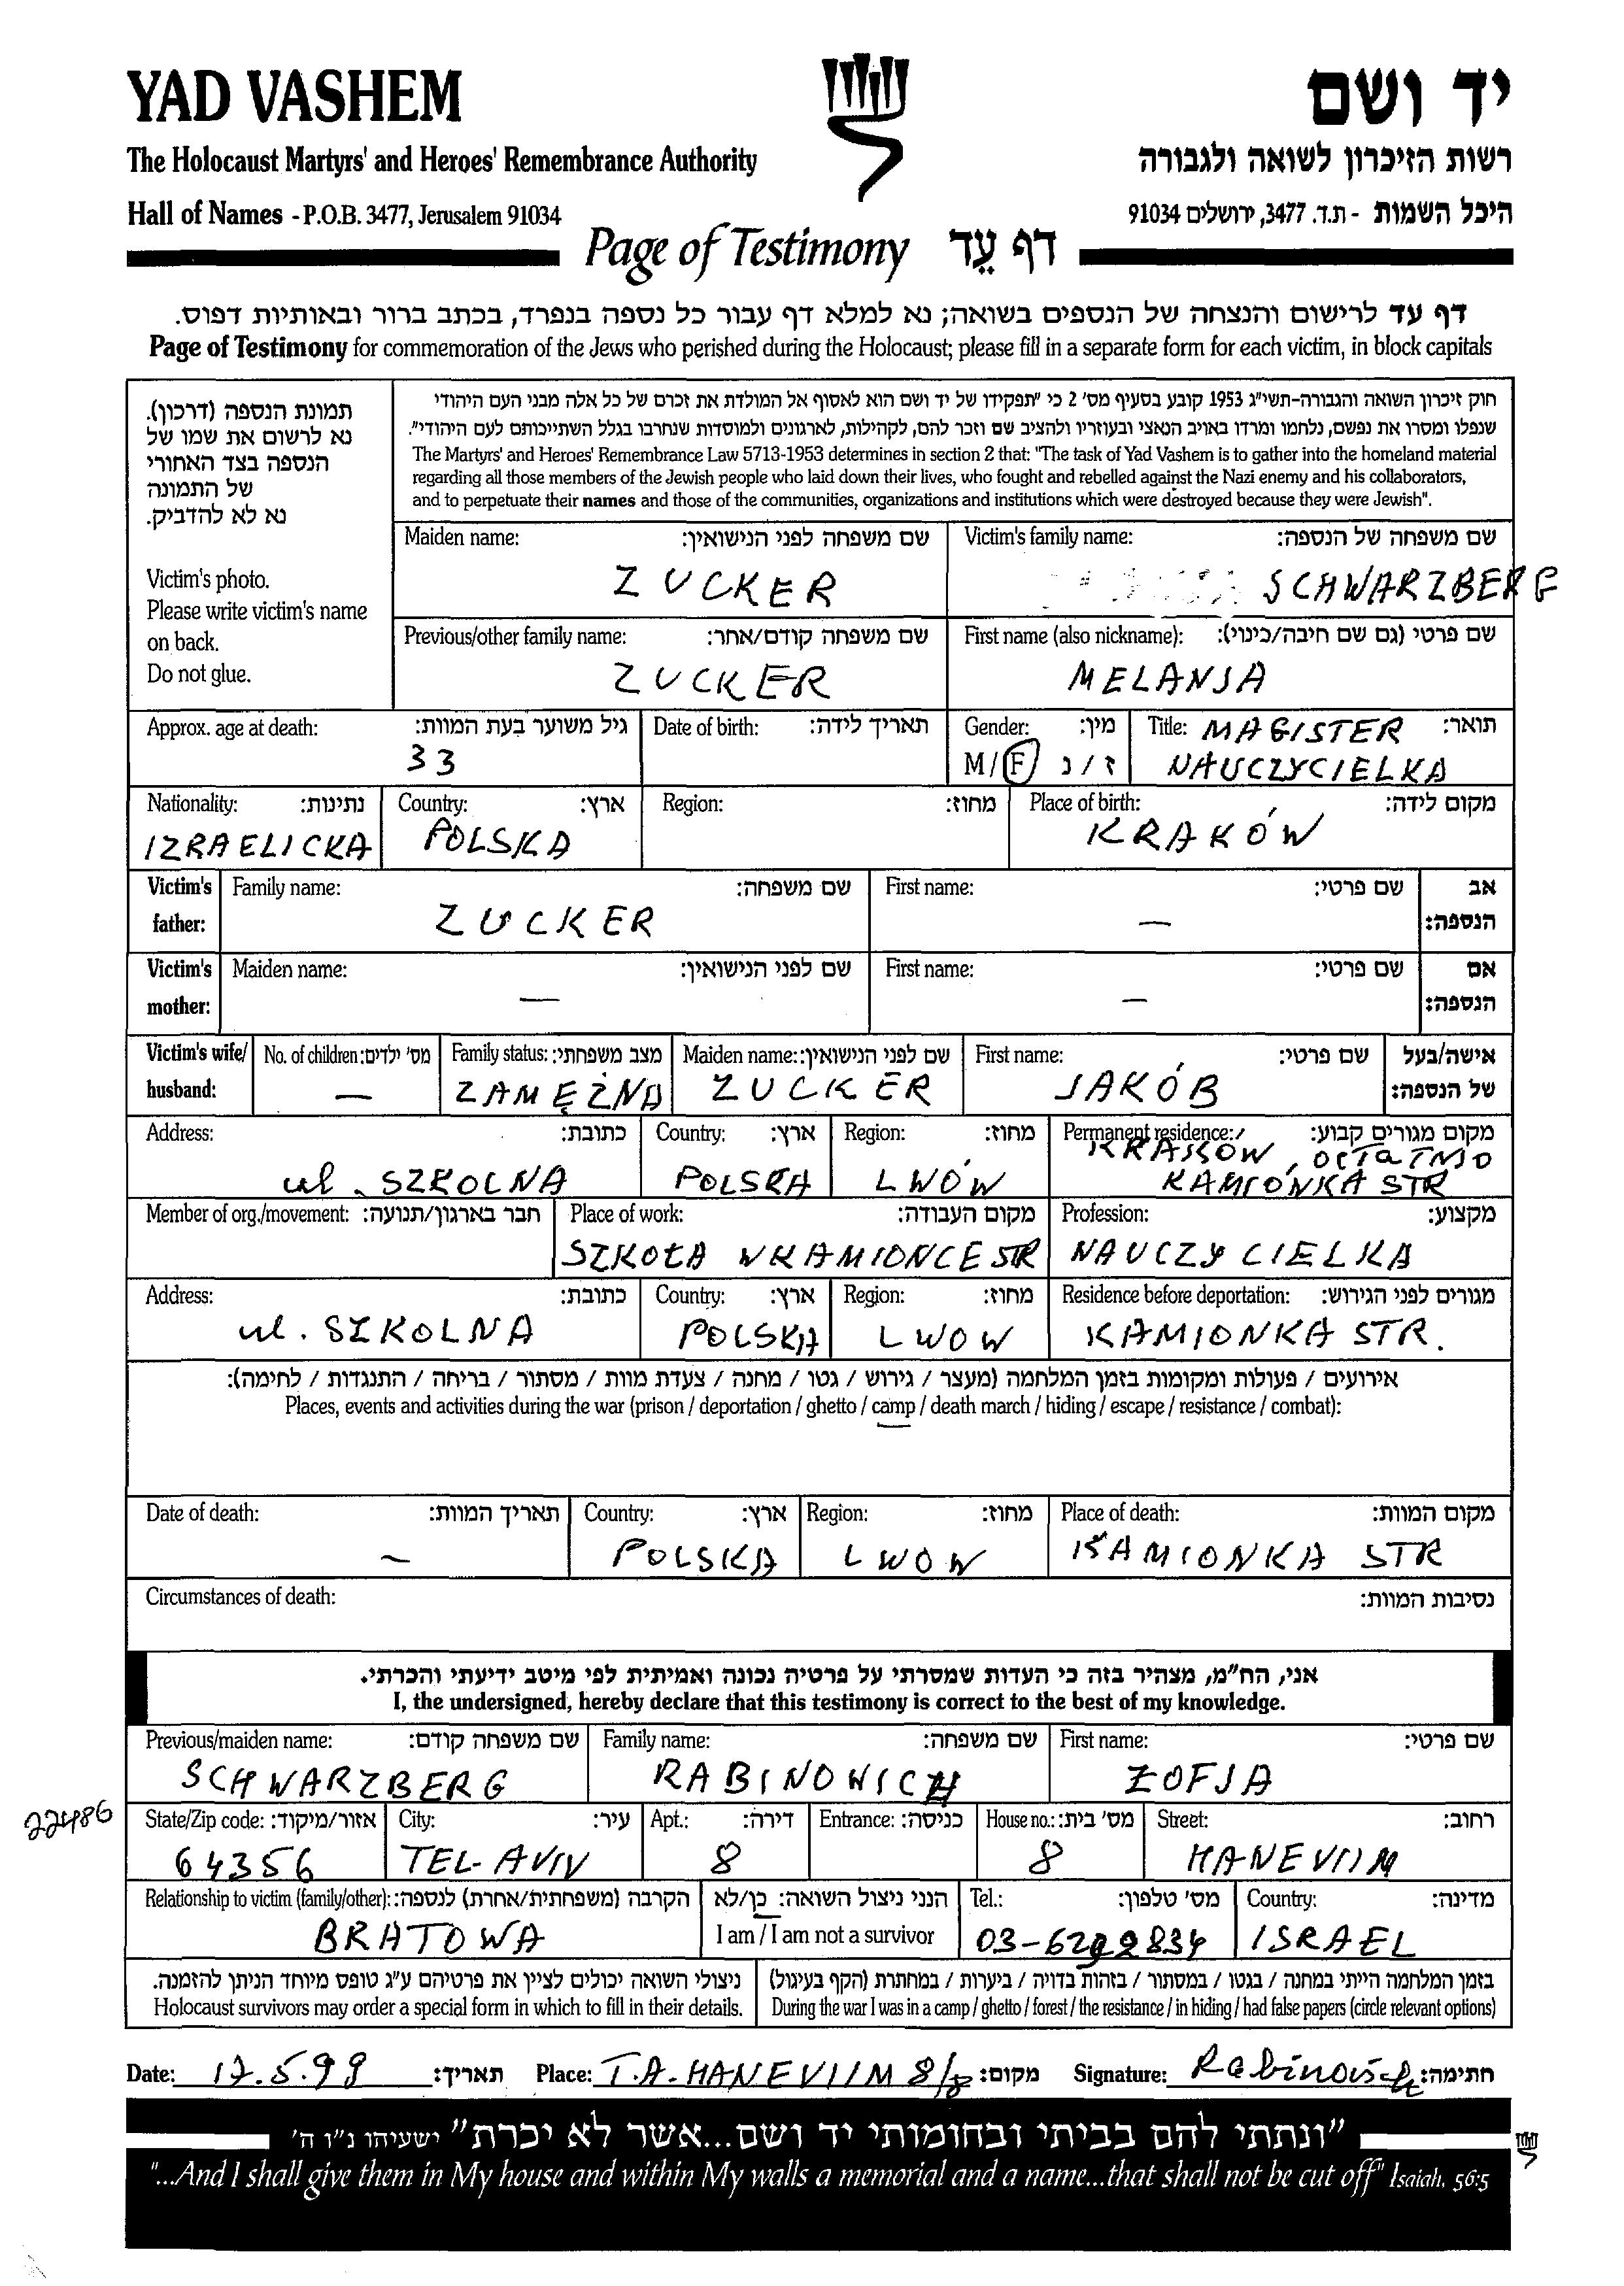 YAD VASHEM
יד ושם
The Holocaust Martyrs' and Heroes' Remembrance Authority
רשות הזיכרון לשואה ולגבורה
Hall of Names - P.O.B. 3477, Jerusalem 91034
היכל השמות - ת.ד. 3477, ירושלים 91034
Page of Testimony דף עֵד
דף עד לרישום והנצחה של הנספים בשואה; נא למלא דף עבור כל נספה בנפרד, בכתב ברור ובאותיות דפוס.
Page of Testimony for commemoration of the Jews who perished during the Holocaust; please fill in a separate form for each victim, in block capitals
תמונת הנספה (דרכון).
נא לרשום את שמו של
הנספה בצד האחורי
של התמונה
נא לא להדביק.
Victim's photo.
Please write victim's name
on back.
Do not glue.
חוק זיכרון השואה והגבורה-תשי"ג 1953 קובע בסעיף מס' 2 כי "תפקידו של יד ושם הוא לאסוף אל המולדת את זכרם של כל אלה מבני העם היהודי
שנפלו ומסרו את נפשם, נלחמו ומרדו באויב הנאצי ובעוזריו ולהציב שם וזכר להם, לקהילות, לארגונים ולמוסדות שנחרבו בגלל השתייכותם לעם היהודי".
The Martyrs' and Heroes' Remembrance Law 5713-1953 determines in section 2 that: "The task of Yad Vashem is to gather into the homeland material
regarding all those members of the Jewish people who laid down their lives, who fought and rebelled against the Nazi enemy and his collaborators,
and to perpetuate their names and those of the communities, organizations and institutions which were destroyed because they were Jewish".
Maiden name: שם משפחה לפני הנישואין: Victim's family name: שם משפחה של הנספה:
ZUCKER SCHWARZBERG
Previous/other family name: שם משפחה קודם/אחר: First name (also nickname): שם פרטי (גם שם חיבה/כינוי):
ZUCKER MELANJA
Approx. age at death: גיל משוער בעת המוות: Date of birth: תאריך לידה: Gender: מין: Title: MAGISTER תואר:
33 M/F ז/נ NAUCZYCIELKA
Nationality: נתינות: Country: ארץ: Region: מחוז: Place of birth: מקום לידה:
IZRAELICKA POLSKA KRAKÓW
Victim's father: Family name: שם משפחה: First name: שם פרטי: אב הנספה:
ZUCKER —
Victim's mother: Maiden name: שם לפני הנישואין: First name: שם פרטי: אם הנספה:
— —
Victim's wife/ husband: No. of children: מס' ילדים: Family status: מצב משפחתי: Maiden name: שם לפני הנישואין: First name: שם פרטי: אישה/בעל של הנספה:
— ZAMĘŻNA ZUCKER JAKÓB
Address: כתובת: Country: ארץ: Region: מחוז: Permanent residence: מקום מגורים קבוע:
ul. SZKOLNA POLSKA LWÓW
KAMIONKA STR
Member of org./movement: חבר בארגון/תנועה: Place of work: מקום העבודה: Profession: מקצוע:
SZKOŁA W KAMIONCE STR NAUCZYCIELKA
Address: כתובת: Country: ארץ: Region: מחוז: Residence before deportation: מגורים לפני הגירוש:
ul. SZKOLNA POLSKA LWOW KAMIONKA STR.
אירועים / פעולות ומקומות בזמן המלחמה (מעצר / גירוש / גטו / מחנה / צעדת מוות / מסתור / בריחה / התנגדות / לחימה):
Places, events and activities during the war (prison / deportation / ghetto / camp / death march / hiding / escape / resistance / combat):
Date of death: תאריך המוות: Country: ארץ: Region: מחוז: Place of death: מקום המוות:
— POLSKA LWOW KAMIONKA STR
Circumstances of death: נסיבות המוות:
אני, הח"מ, מצהיר בזה כי העדות שמסרתי על פרטיה נכונה ואמיתית לפי מיטב ידיעתי והכרתי.
I, the undersigned, hereby declare that this testimony is correct to the best of my knowledge.
Previous/maiden name: שם משפחה קודם: Family name: שם משפחה: First name: שם פרטי:
SCHWARZBERG RABINOWICH ZOFJA
22486
State/Zip code: אזור/מיקוד: City: עיר: Apt.: דירה: Entrance: כניסה: House no.: מס' בית: Street: רחוב:
64356 TEL-AVIV 8 8 HANEVIIM
Relationship to victim (family/other): הקרבה (משפחתית/אחרת) לנספה: הנני ניצול השואה: כן/לא Tel.: מס' טלפון: Country: מדינה:
BRATOWA I am / I am not a survivor 03-6292834 ISRAEL
ניצולי השואה יכולים לציין את פרטיהם ע"ג טופס מיוחד הניתן להזמנה. בזמן המלחמה הייתי במחנה / בגטו / במסתור / בזהות בדויה / ביערות / במחתרת (הקף בעיגול)
Holocaust survivors may order a special form in which to fill in their details. During the war I was in a camp / ghetto / forest / the resistance / in hiding / had false papers (circle relevant options)
Date: 17.5.99 תאריך: Place: T.A. HANEVIIM 8/8 מקום: Signature: Rabinovich חתימה:
"ונתתי להם בביתי ובחומותי יד ושם...אשר לא יכרת" ישעיהו נ"ו ה'
"...And I shall give them in My house and within My walls a memorial and a name...that shall not be cut off" Isaiah, 56:5